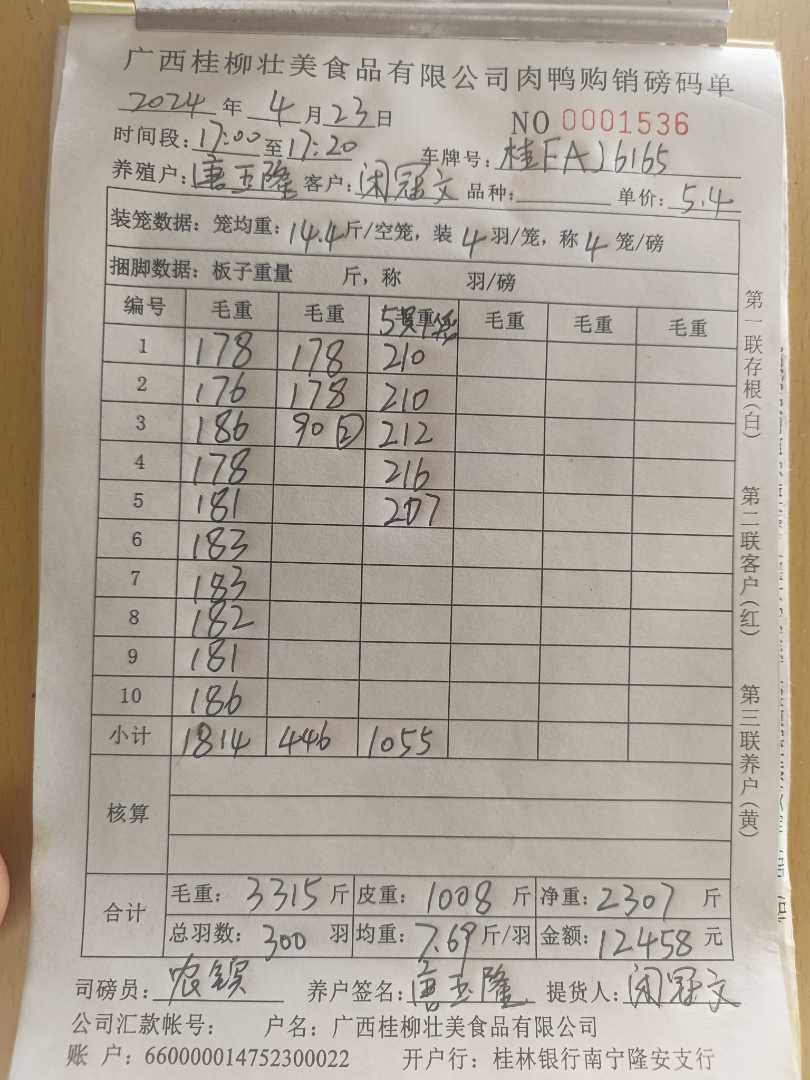 广西桂柳壮美食品有限公司肉鸭购销磅码单
2024 年 4 月 23 日
NO 0001536
时间段: 17:00 至 17:20 车牌号: 桂FA26165
养殖户: 唐玉隆 客户: 闭冠文 品种: 单价: 5.4
装笼数据: 笼均重: 14.4 斤/空笼, 装 4 羽/笼, 称 4 笼/磅
捆脚数据: 板子重量 斤, 称 羽/磅
编号 毛重 毛重 重 毛重 毛重 毛重
1 178 178 210
2 176 178 210
3 186 90 ② 212
4 178 216
5 181 207
6 183
7 183
8 182
9 181
10 186
小计 1814 446 1055
核算
合计 毛重: 3315 斤 皮重: 1008 斤 净重: 2307 斤
总羽数: 300 羽 均重: 7.69 斤/羽 金额: 12458 元
司磅员: 农 养户签名: 唐玉隆 提货人: 闭冠文
公司汇款帐号: 户名: 广西桂柳壮美食品有限公司
账 户: 660000014752300022 开户行: 桂林银行南宁隆安支行
第一联存根(白)
第二联客户(红)
第三联养户(黄)